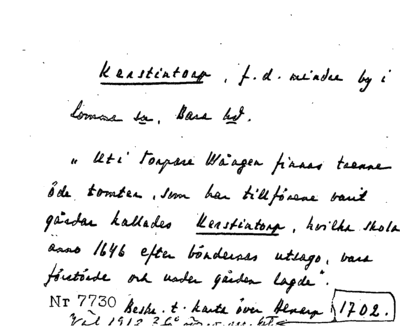 Kerstintorp, f.d. mindre by i
Lomma sn, Bara hd.
„ Uti Torpare Wången finnas trenne
öde tomter, som har tillförene varit
gårdar kallades Kerstintorp, hvilka skola
anno 1646 efter böndernas utsago, vara
förstörde och under gården lagde".
Nr 7730 Beskr. t. karta över Alnarp 1702.